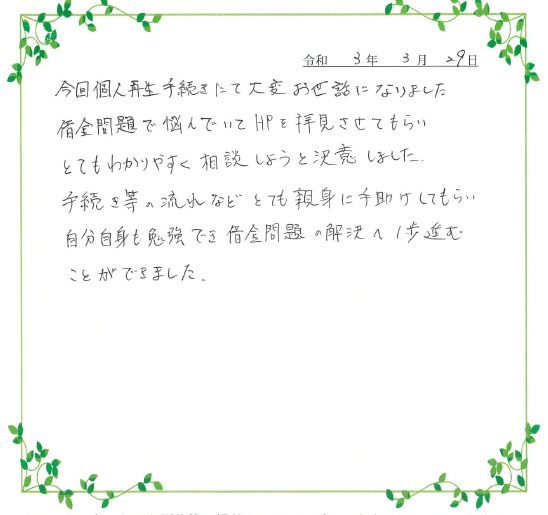 令和 3年 3月 29日
今回個人再生手続きにて大変お世話になりました
借金問題で悩んでいてHPを拝見させてもらい
とてもわかりやすく相談しようと決意しました.
手続き等の流れなどとても親身に手助けしてもらい
自分自身も勉強でき借金問題の解決へ1歩進む
ことができました.